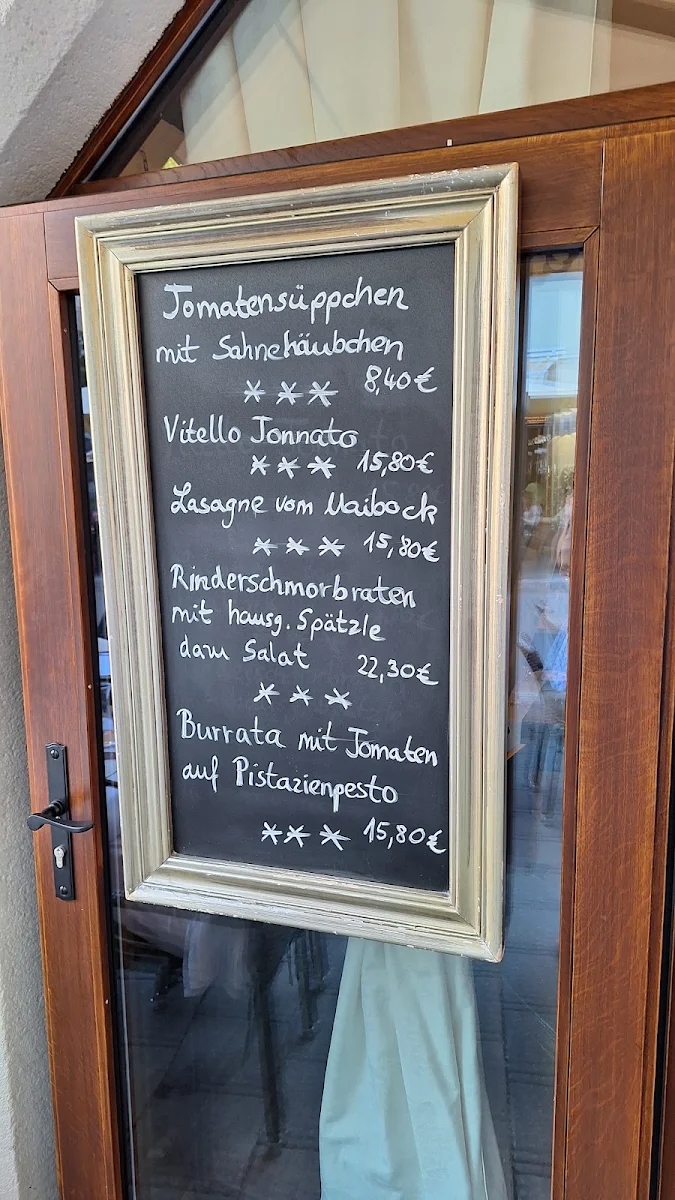 Tomatensüppchen
mit Sahnehäubchen
8,40€
*** 
Vitello Tonnato
*** 15,80€
Lasagne vom Maibock
*** 15,80€
Rinderschmorbraten
mit hausg. Spätzle
dazu Salat 22,30€
***
Burrata mit Tomaten
auf Pistazienpesto
*** 15,80€